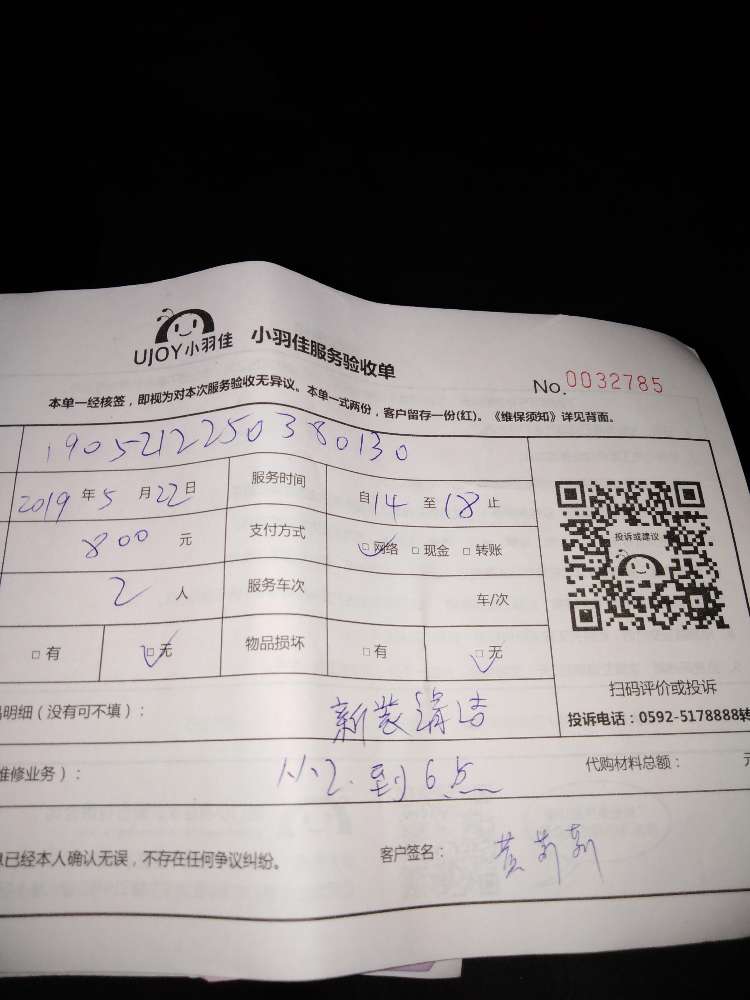 UJOY小羽佳 小羽佳服务验收单
No. 0032785
本单一经核签，即视为对本次服务验收无异议。本单一式两份，客户留存一份(红)。《维保须知》详见背面。
1905212250380130
2019年5月22日 服务时间 自14至18止
800元 支付方式 □网络 □现金 □转账
2人 服务车次 车/次
□有 □无 物品损坏 □有 □无
投诉或建议
扫码评价或投诉
投诉电话：0592-5178888转
明细（没有可不填）： 新装清洁
维修业务）： 从2.到6点 代购材料总额： 元
已经本人确认无误，不存在任何争议纠纷。 客户签名： 黄莉莉